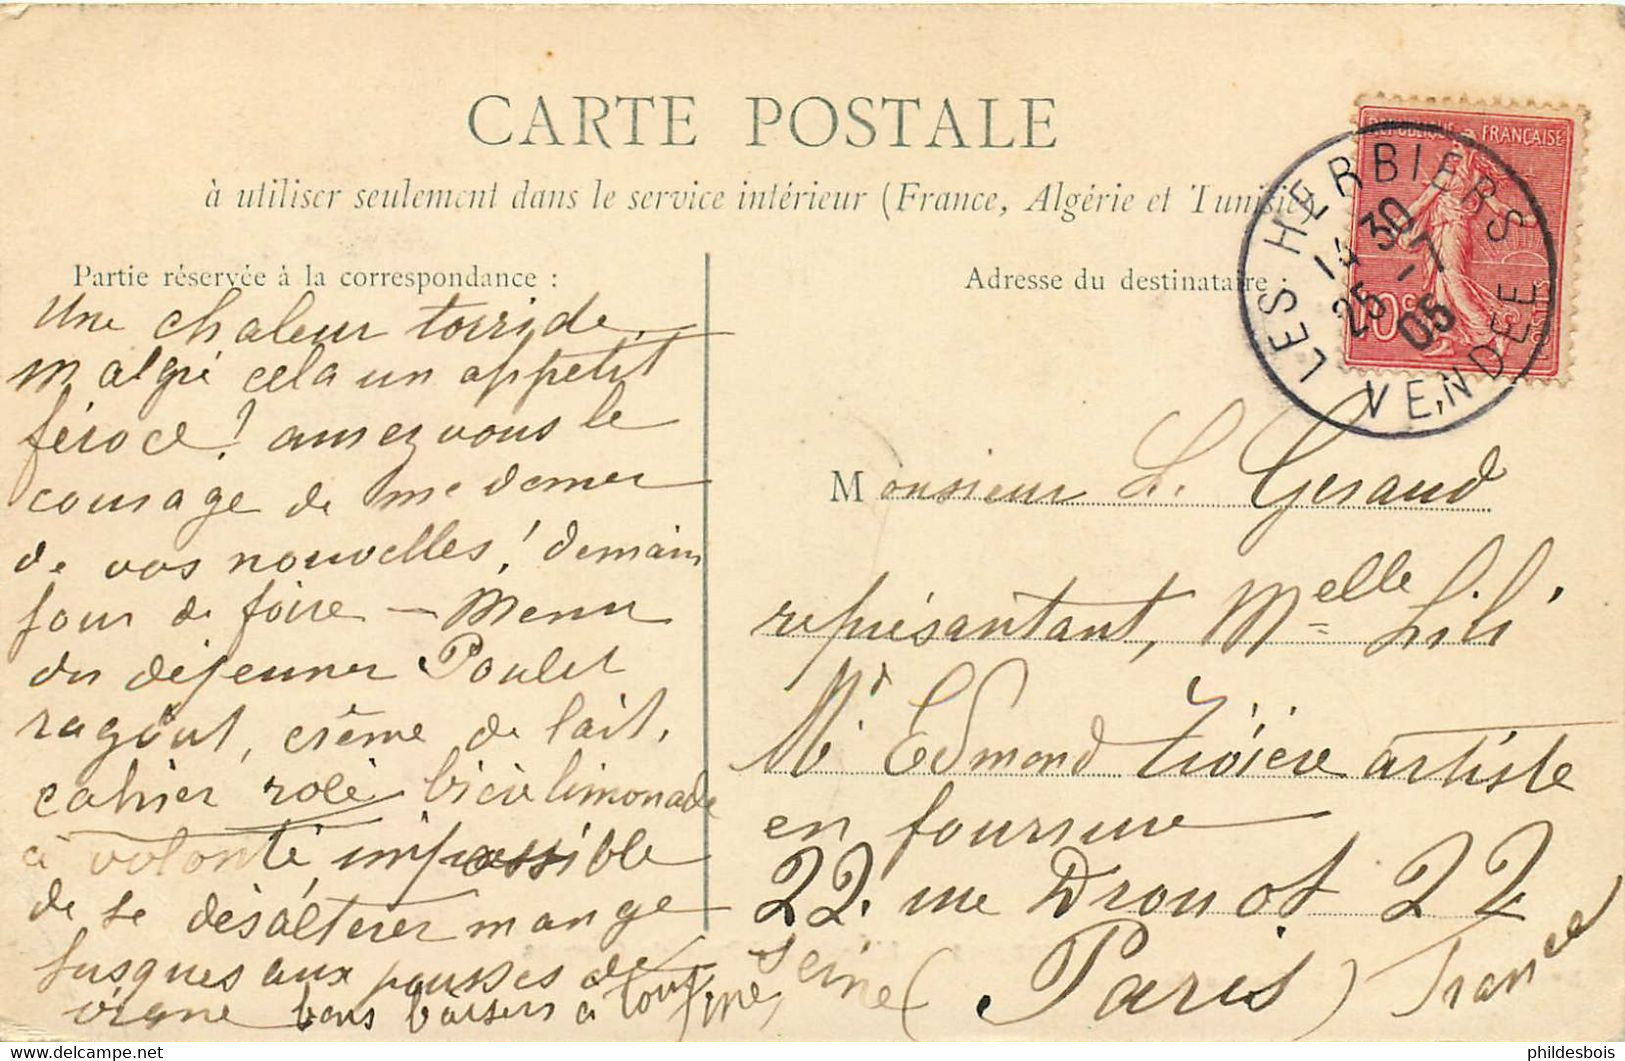 CARTE POSTALE
à utiliser seulement dans le service intérieur (France, Algérie et Tunisie)
REPUBLIQUE FRANÇAISE
LES HERBIERS
14 30
25 - 7
05
VENDÉE
10c
POSTES
Partie réservée à la correspondance :
Une chaleur torride
malgré cela un appetit
féroce! aurez vous le
courage de me donner
de vos nouvelles! demain
jour de foire - Menu
du déjeuner Poulet
ragoût, crême de lait,
bière limonade
à volonté, impossible
de se désaltérer mange
jusques aux pousses de
vigne bons baisers à
Adresse du destinataire :
Monsieur L. Geraud
représantant, Melle Lili
Mr Edmond artiste
en fourrure
22. rue Drouot 22
Seine (Paris) France
phildesbois